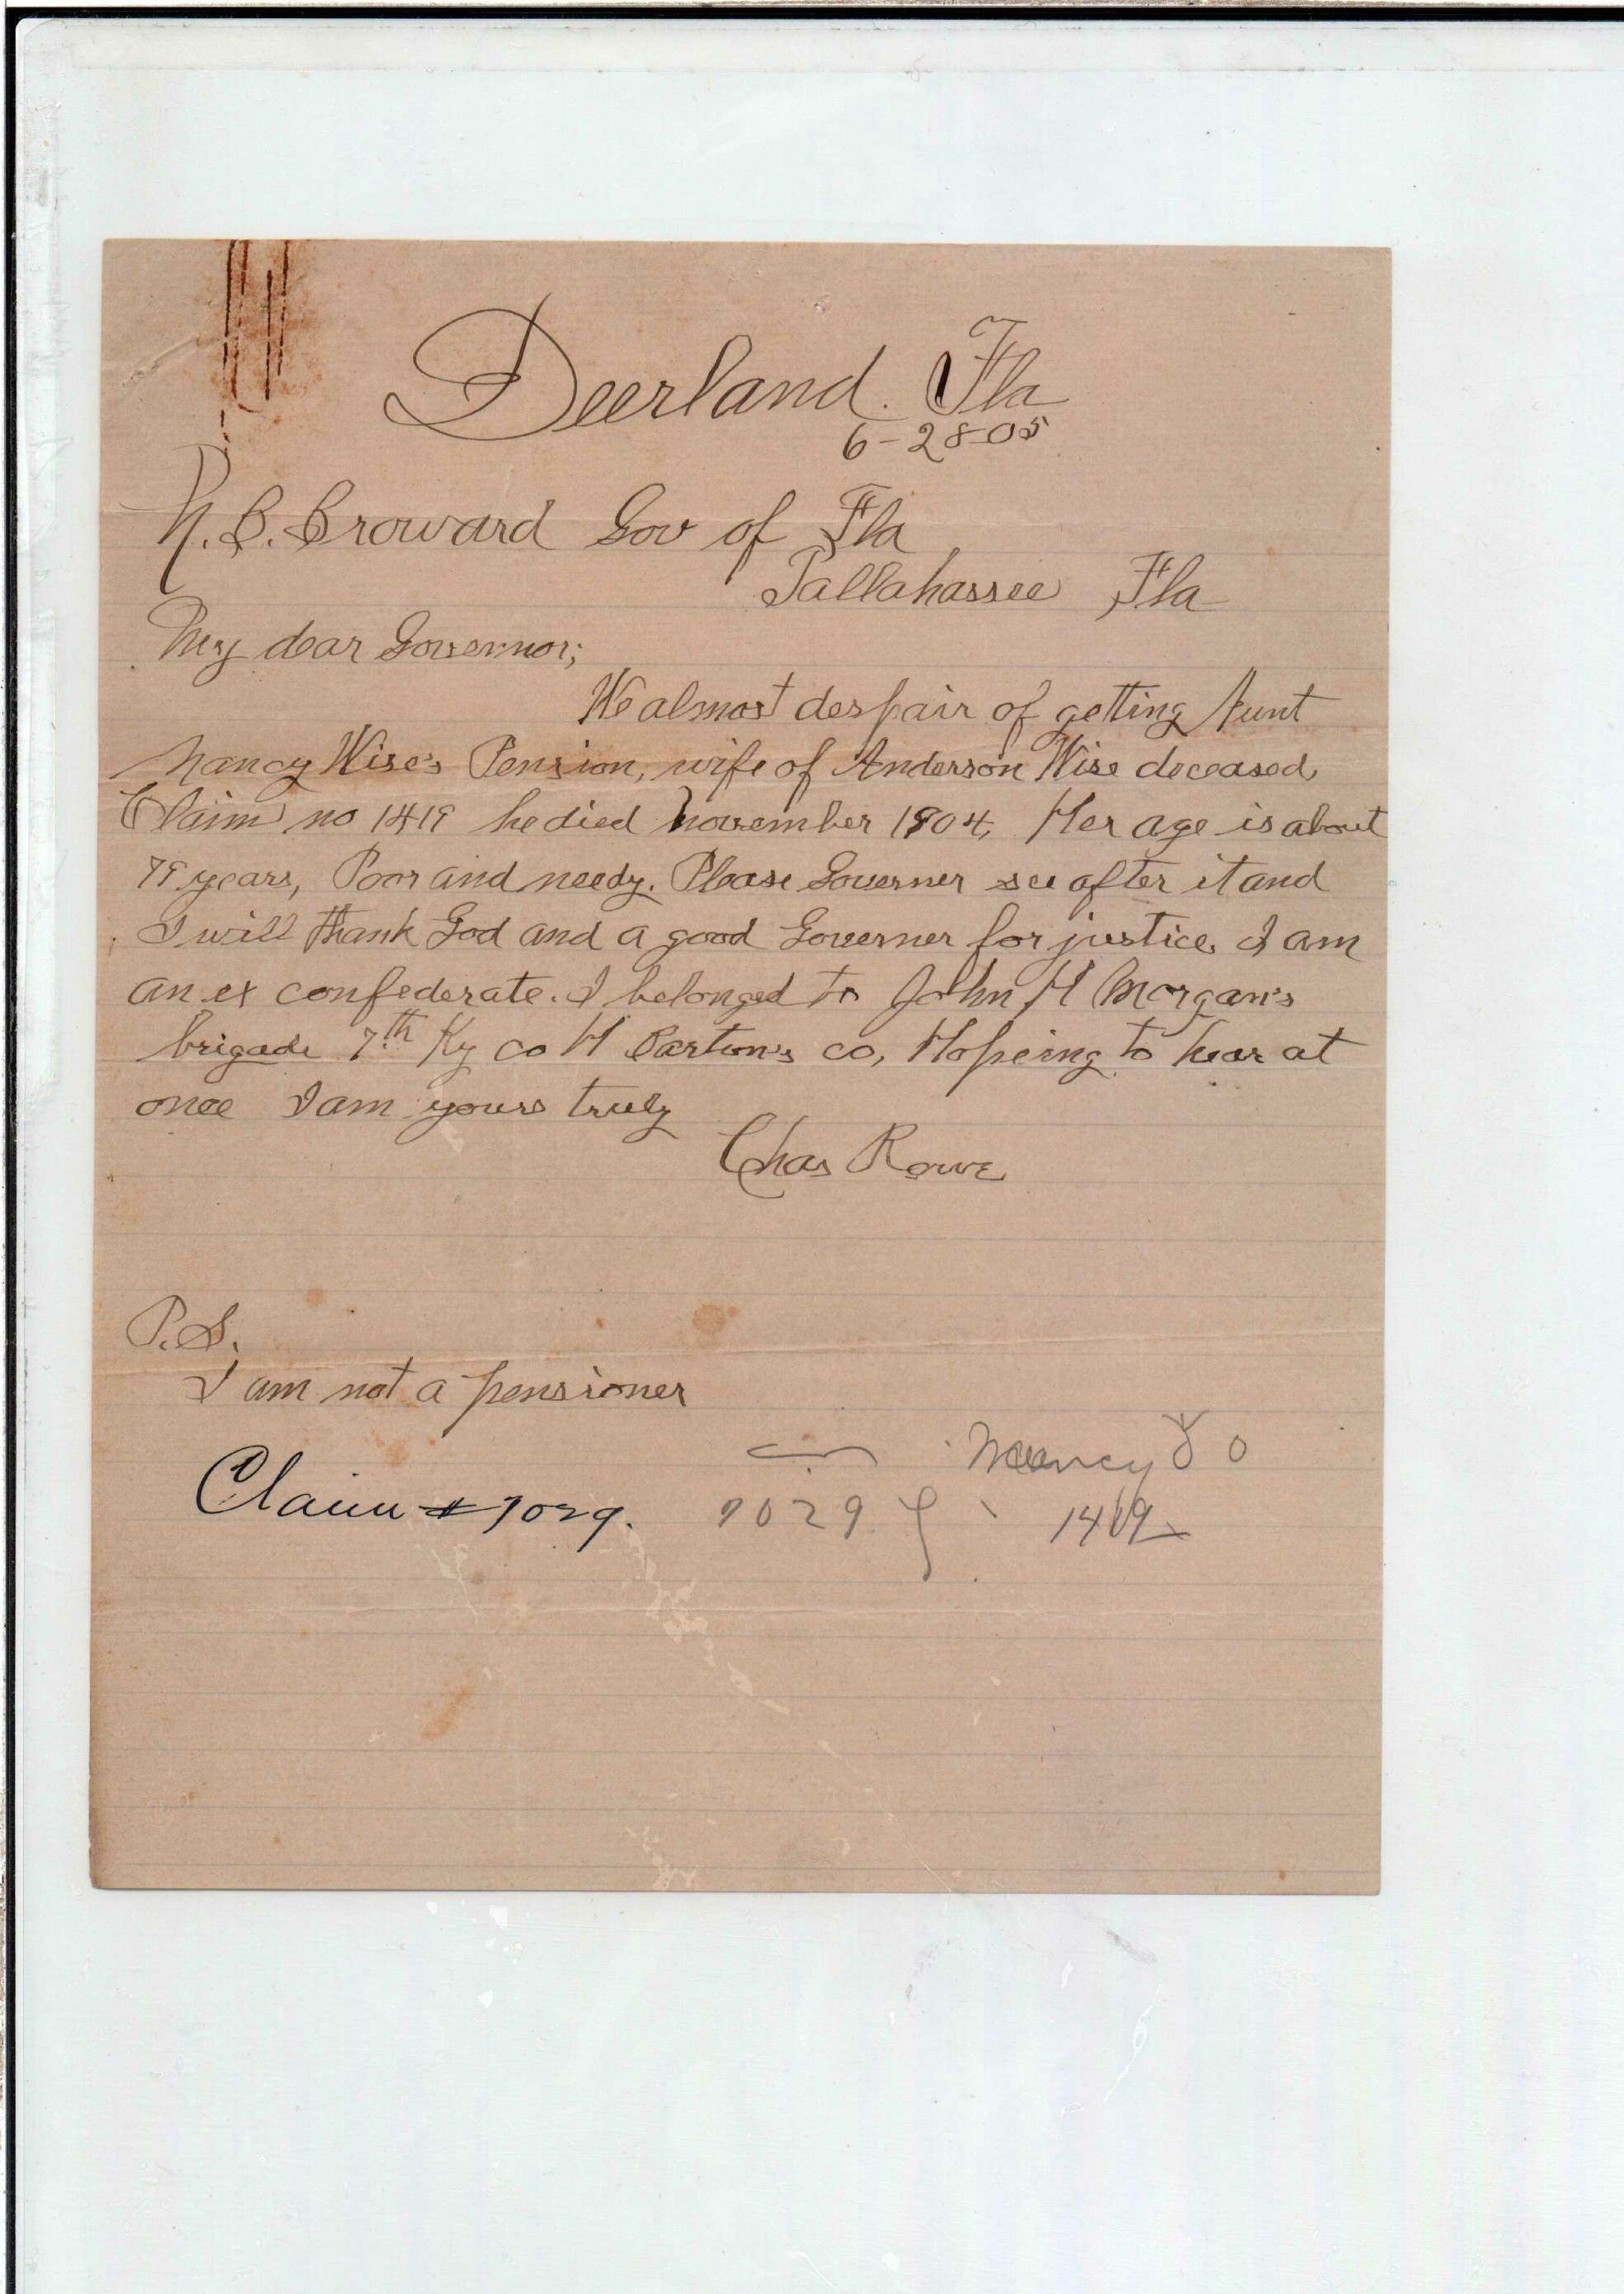 Deerland. Fla
6-28-05
N. B. Broward Gov of Fla
Tallahassee Fla
My dear Governor;
We almost despair of getting Aunt
Nancy Wise's Pension, wife of Anderson Wise deceased,
Claim no 1419 he died November 1904, Her age is about
79 years, Poor and needy. Please Governer see after it and
I will thank God and a good Governer for justice, I am
an ex confederate. I belonged to John H Morgan's
brigade 7th Ky co H Barton's co, Hopeing to hear at
once I am yours truly
Chas Rowe
P.S.
I am not a pensioner
Nancy
Claim # 7029. 7029 1419